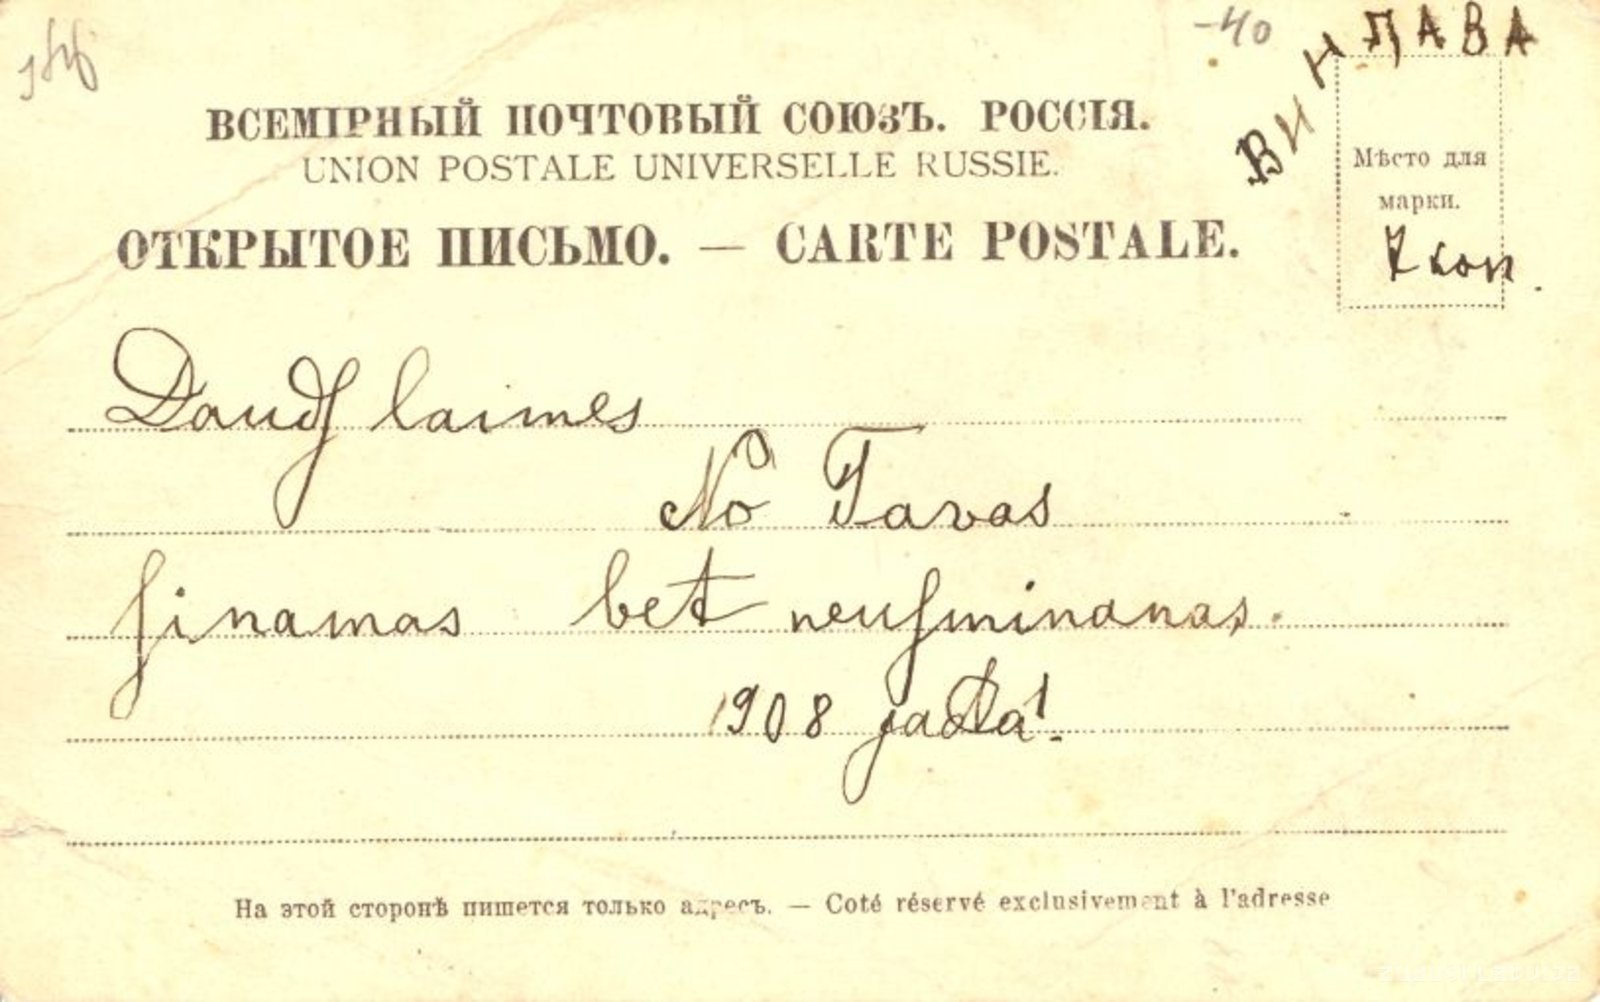 -40
ВИНДАВА
ВСЕМІРНЫЙ ПОЧТОВЫЙ СОЮЗЪ. РОССІЯ.
UNION POSTALE UNIVERSELLE RUSSIE.
Мѣсто для
марки.
7 коп.
ОТКРЫТОЕ ПИСЬМО. — CARTE POSTALE.
Daudſ laimes
No Tavas
ſinamas bet neuſminanas.
1908 gada!
На этой сторонѣ пишется только адресъ. — Coté réservé exclusivement à l'adresse